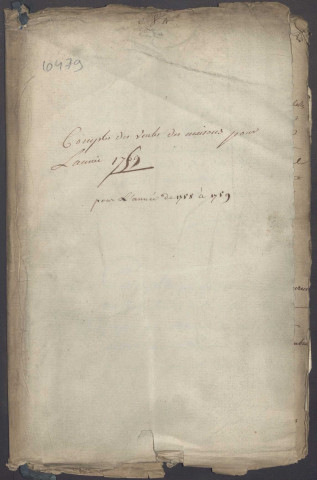 10479
Comptes des rentes des maisons pour
L'année 1789
pour L'année de 1788 à 1789